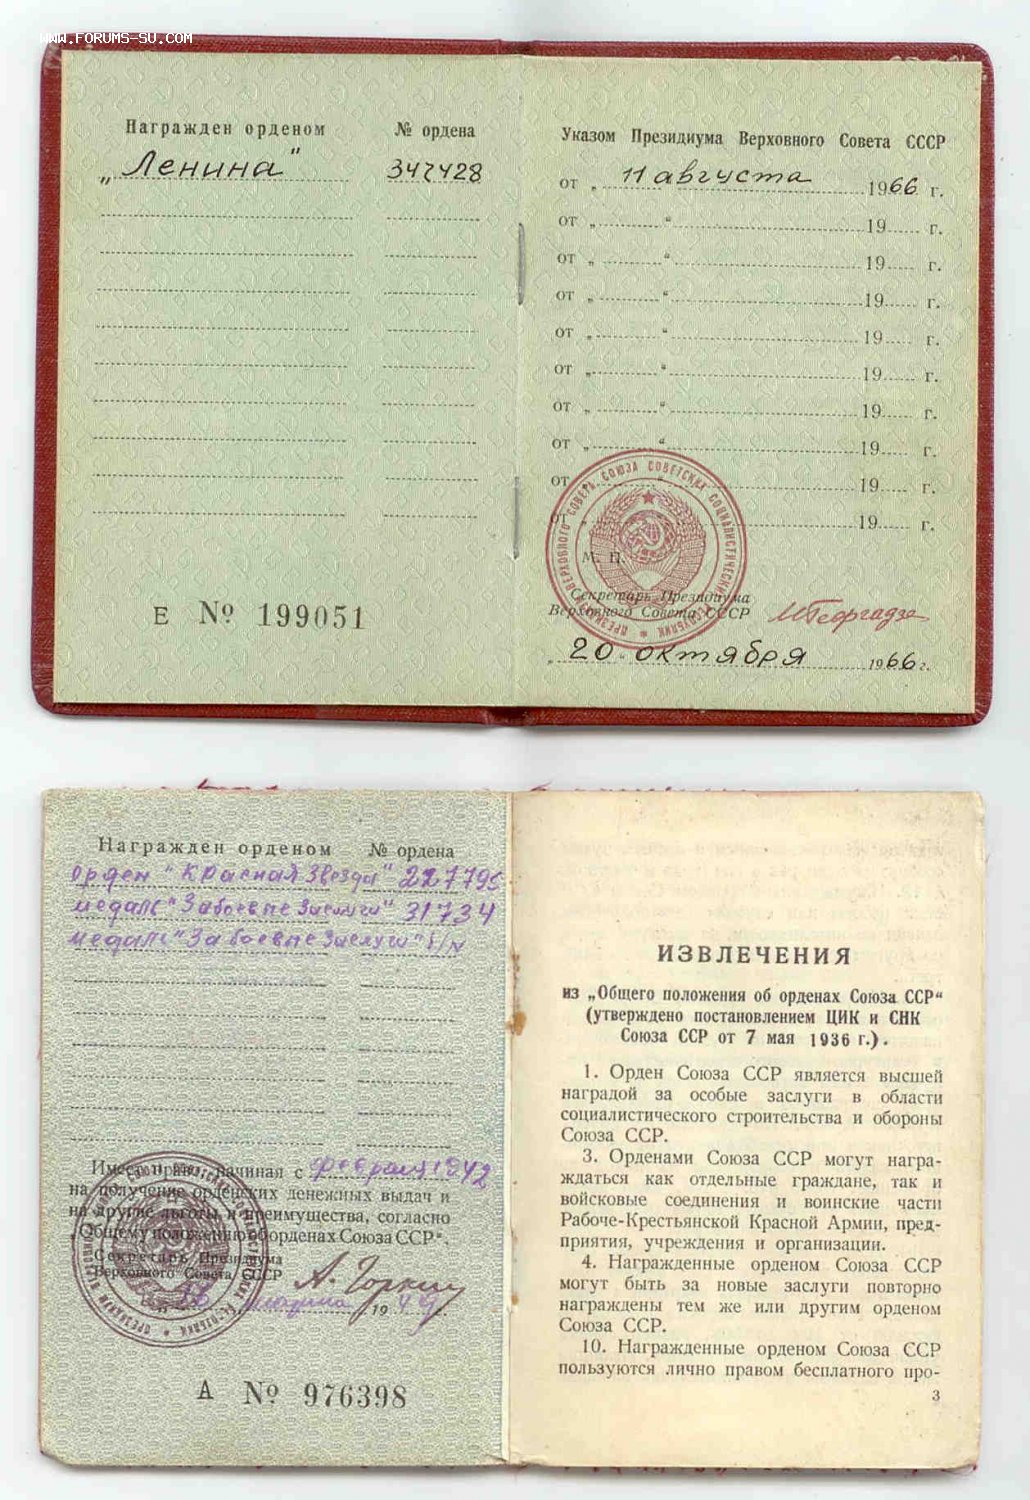 WWW.FORUMS-SU.COM
Награжден орденом № ордена
„Ленина" 347428
Указом Президиума Верховного Совета СССР
от „ 11 августа 1966 г.
от „ “ 19 г.
от „ “ 19 г.
от „ “ 19 г.
от „ “ 19 г.
от „ “ 19 г.
от „ “ 19 г.
от „ “ 19 г.
от „ “ 19 г.
от „ “ 19 г.
М. П.
Секретарь Президиума
Верховного Совета СССР М Георгадзе
„ 20 октября 1966 г.
Е № 199051
ПРЕЗИДИУМ ВЕРХОВНОГО СОВЕТА СОЮЗА СОВЕТСКИХ СОЦИАЛИСТИЧЕСКИХ РЕСПУБЛИК
Награжден орденом № ордена
орден "Красная Звезда" 227795
медаль "За боевые Заслуги" 31734
медаль "За боевые Заслуги" б/н
Имеет право, начиная с февраля 1942
на получение орденских денежных выдач и
на другие льготы и преимущества, согласно
„Общему положению об орденах Союза ССР“.
Секретарь Президиума
Верховного Совета СССР А. Горкин
19 49
А № 976398
ИЗВЛЕЧЕНИЯ
из „Общего положения об орденах Союза ССР“
(утверждено постановлением ЦИК и СНК
Союза ССР от 7 мая 1936 г.).
1. Орден Союза ССР является высшей
наградой за особые заслуги в области
социалистического строительства и обороны
Союза ССР.
3. Орденами Союза ССР могут награ-
ждаться как отдельные граждане, так и
войсковые соединения и воинские части
Рабоче-Крестьянской Красной Армии, пред-
приятия, учреждения и организации.
4. Награжденные орденом Союза ССР
могут быть за новые заслуги повторно
награждены тем же или другим орденом
Союза ССР.
10. Награжденные орденом Союза ССР
пользуются лично правом бесплатного про-
3